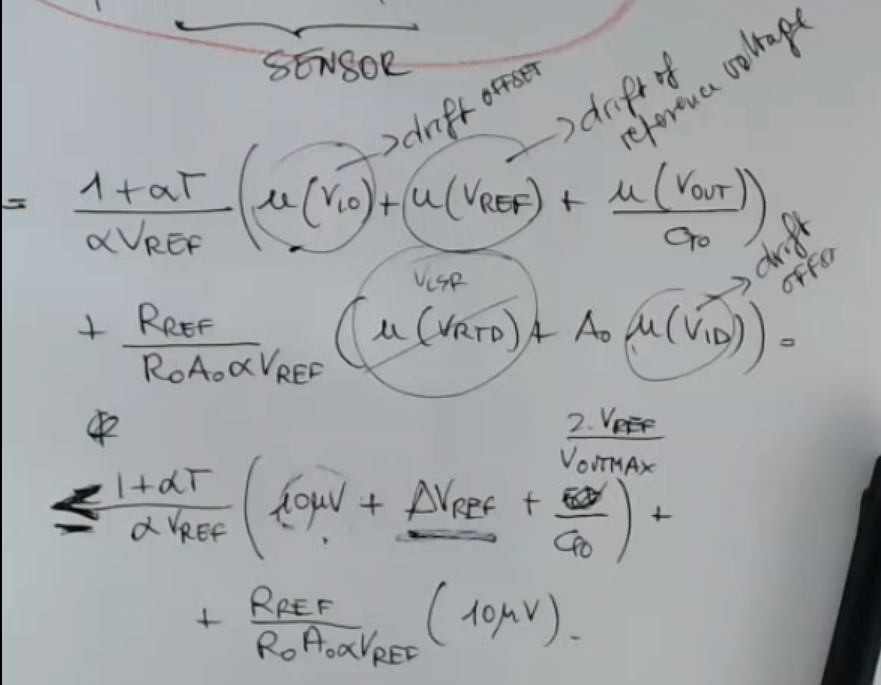 SENSOR
drift OFFSET
drift of
reference voltage
= (1+αT)/(αVREF) (u(VIO) + u(VREF) + u(VOUT)/G0)
drift
OFFST
VLSR
+ RREF/(R0A0αVREF) (u(VRTD) + A0 u(VID)) =
2.VREF/VOUTMAX
≤ (1+αT)/(αVREF) (10μV + ΔVREF + /G0) +
+ RREF/(R0A0αVREF) (10μV).